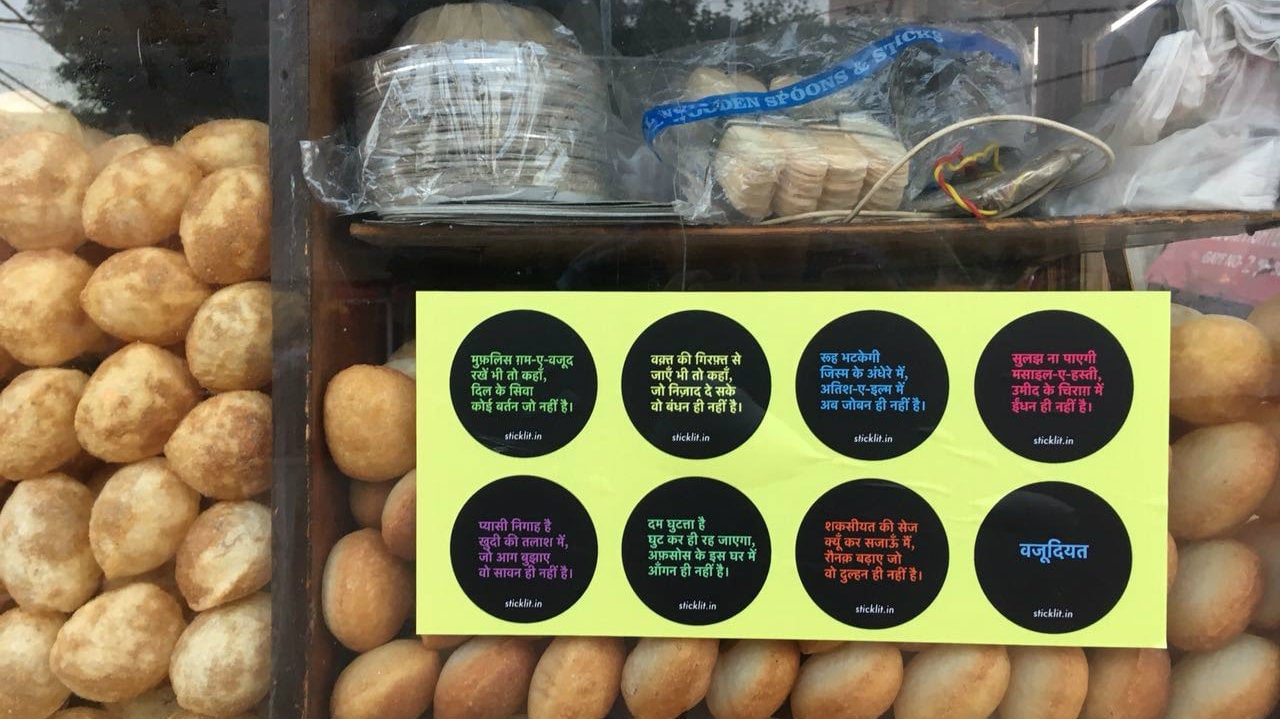 WOODEN SPOONS & STICKS
मुफ़लिस ग़म-ए-वजूद
रखें भी तो कहाँ,
दिल के सिवा
कोई बर्तन जो नहीं है।
sticklit.in
वक़्त की गिरफ़्त से
जाएँ भी तो कहाँ,
जो निज़ाद दे सके
वो बंधन ही नहीं है।
sticklit.in
रूह भटकेगी
जिस्म के अंधेरे में,
अतिश-ए-इल्म में
अब जोबन ही नहीं है।
sticklit.in
सुलझ ना पाएगी
मसाइल-ए-हस्ती,
उमीद के चिराग़ में
ईंधन ही नहीं है।
sticklit.in
प्यासी निगाह है
ख़ुदी की तलाश में,
जो आग बुझाए
वो सावन ही नहीं है।
sticklit.in
दम घुटता है
घुट कर ही रह जाएगा,
अफ़सोस के इस घर में
आँगन ही नहीं है।
sticklit.in
शकसीयत की सेज
क्यूँ कर सजाऊँ मैं,
रौनक़ बढ़ाए जो
वो दुल्हन ही नहीं है।
sticklit.in
वजूदियत
sticklit.in